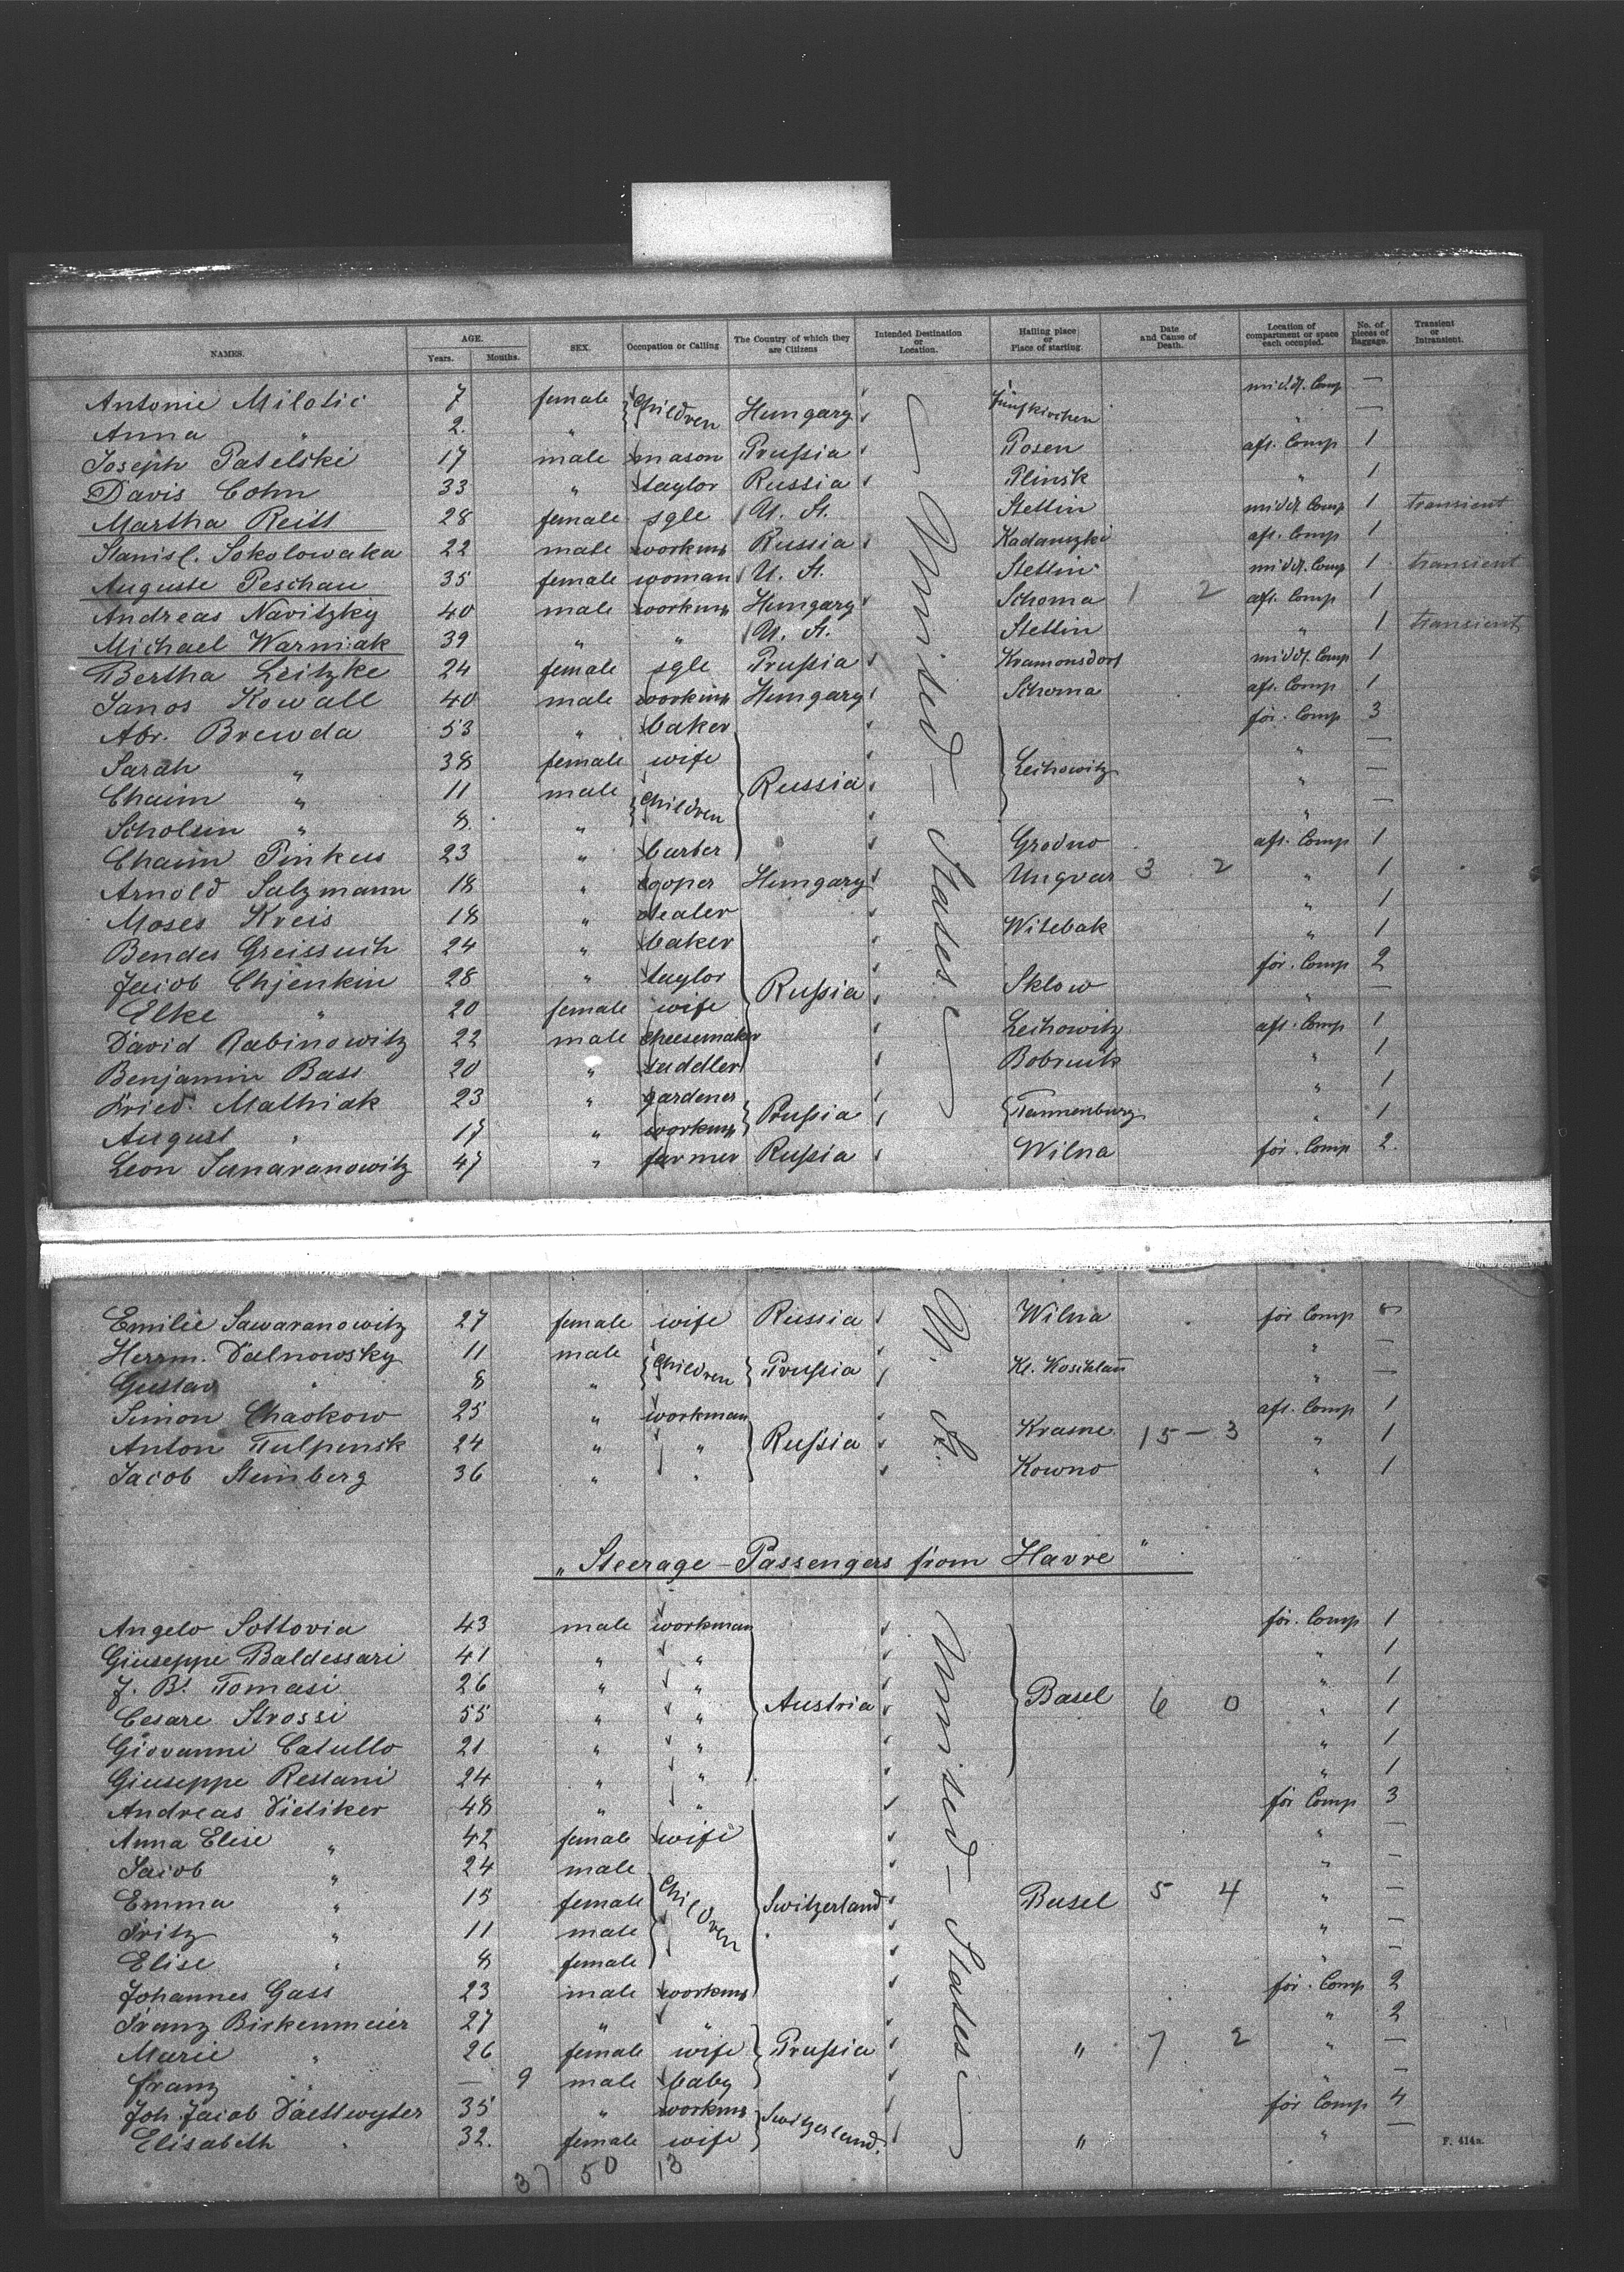 NAMES. AGE. Years. Months. SEX. Occupation or Calling. The Country of which they are Citizens Intended Destination or Location. Hailing place or Place of starting. Date and Cause of Death. Location of compartment or space each occupied. No. of pieces of Baggage. Transient or Intransient.
Antonie Milotic 7 female Children Hungary Fünfkirchen midd. Comp —
Anna " 2. " " —
Joseph Patelski 17 male mason Prussia Posen aft. Comp 1
Davis Cohn 33 " taylor Russia Plinsk " 1
Martha Reiss 28 female sgle U. St. Stettin midd. Comp 1 transient
Stanisl. Sokolowaka 22 male workm Russia aft. Comp 1
Auguste Peschau 35 female woman U. St. Stettin midd. Comp 1 transient
Andreas Navitzky 40 male workm Hungary Schoma 1 2 aft. Comp 1
Michael Warniak 39 " " U. St. Stettin " 1 transient
Bertha Leitzke 24 female sgle Prussia Kramonsdorf midd. Comp 1
Janos Kowall 40 male workm Hungary Schoma aft. Comp 1
Abr. Brewda 53 " baker Russia Leihowitz for. Comp 3
Sarah " 38 female wife " —
Chaim " 11 male Children " —
Scholem " 8. " " —
Chaim Pinkus 23 " barber Grodno aft. Comp 1
Arnold Salzmann 18 " cooper Hungary Ungvar 3 2 " 1
Moses Kreis 18 " dealer Russia Witebak " 1
Bendes Greissuch 24 " baker " 1
Jacob Chjenkin 28 " taylor Sklow for. Comp 2
Elke " 20 female wife " —
David Rabinowitz 22 male cheesemaker Leihowitz aft. Comp 1
Benjamin Bass 20 " saddler Bobruik " 1
Fried. Mathiak 23 " gardener Prussia Tannenburg " 1
August " 17 " workm " 1
Leon Sanaranowitz 47 " farmer Russia Wilna for. Comp 2.
United States
Emilie Sawaranowitz 27 female wife Russia U. St. Wilna for Comp
Herrm. Dalnowsky 11 male Children Prussia Kl. Koschlau " —
Gustav " 8 " " —
Simon Chaokow 25 " workman Russia aft. Comp 1
Anton Tulpensk 24 " " Krasne 15 — 3 " 1
Jacob Steinberg 36 " " Kowno " 1
"Steerage-Passengers from Havre"
Angelo Sottovia 43 male workman Austria Basel 6 0 for. Comp 1
Giuseppe Baldessari 41 " " " 1
J. B. Tomasi 26 " " " 1
Cesare Strossi 55 " " " 1
Giovanni Catullo 21 " " " 1
Giuseppe Restani 24 " " " 1
Andreas Dietiker 48 " " Switzerland Basel 5 4 for Comp 3
Anna Elise " 42 female wife " —
Jacob " 24 male Children " —
Emma " 15 female " —
Fritz " 11 male " —
Elise " 8 female " —
Johannes Gass 23 male workm for. Comp 2
Franz Birkenmeier 27 " " Prussia " 2
Marie " 26 female wife " 7 2 " —
Franz " — 9 male baby " —
Joh. Jacob Daettwyler 35 " workm Switzerland. for Comp 4
Elisabeth " 32. female wife " " —
United States
37 50 13
F. 414a.